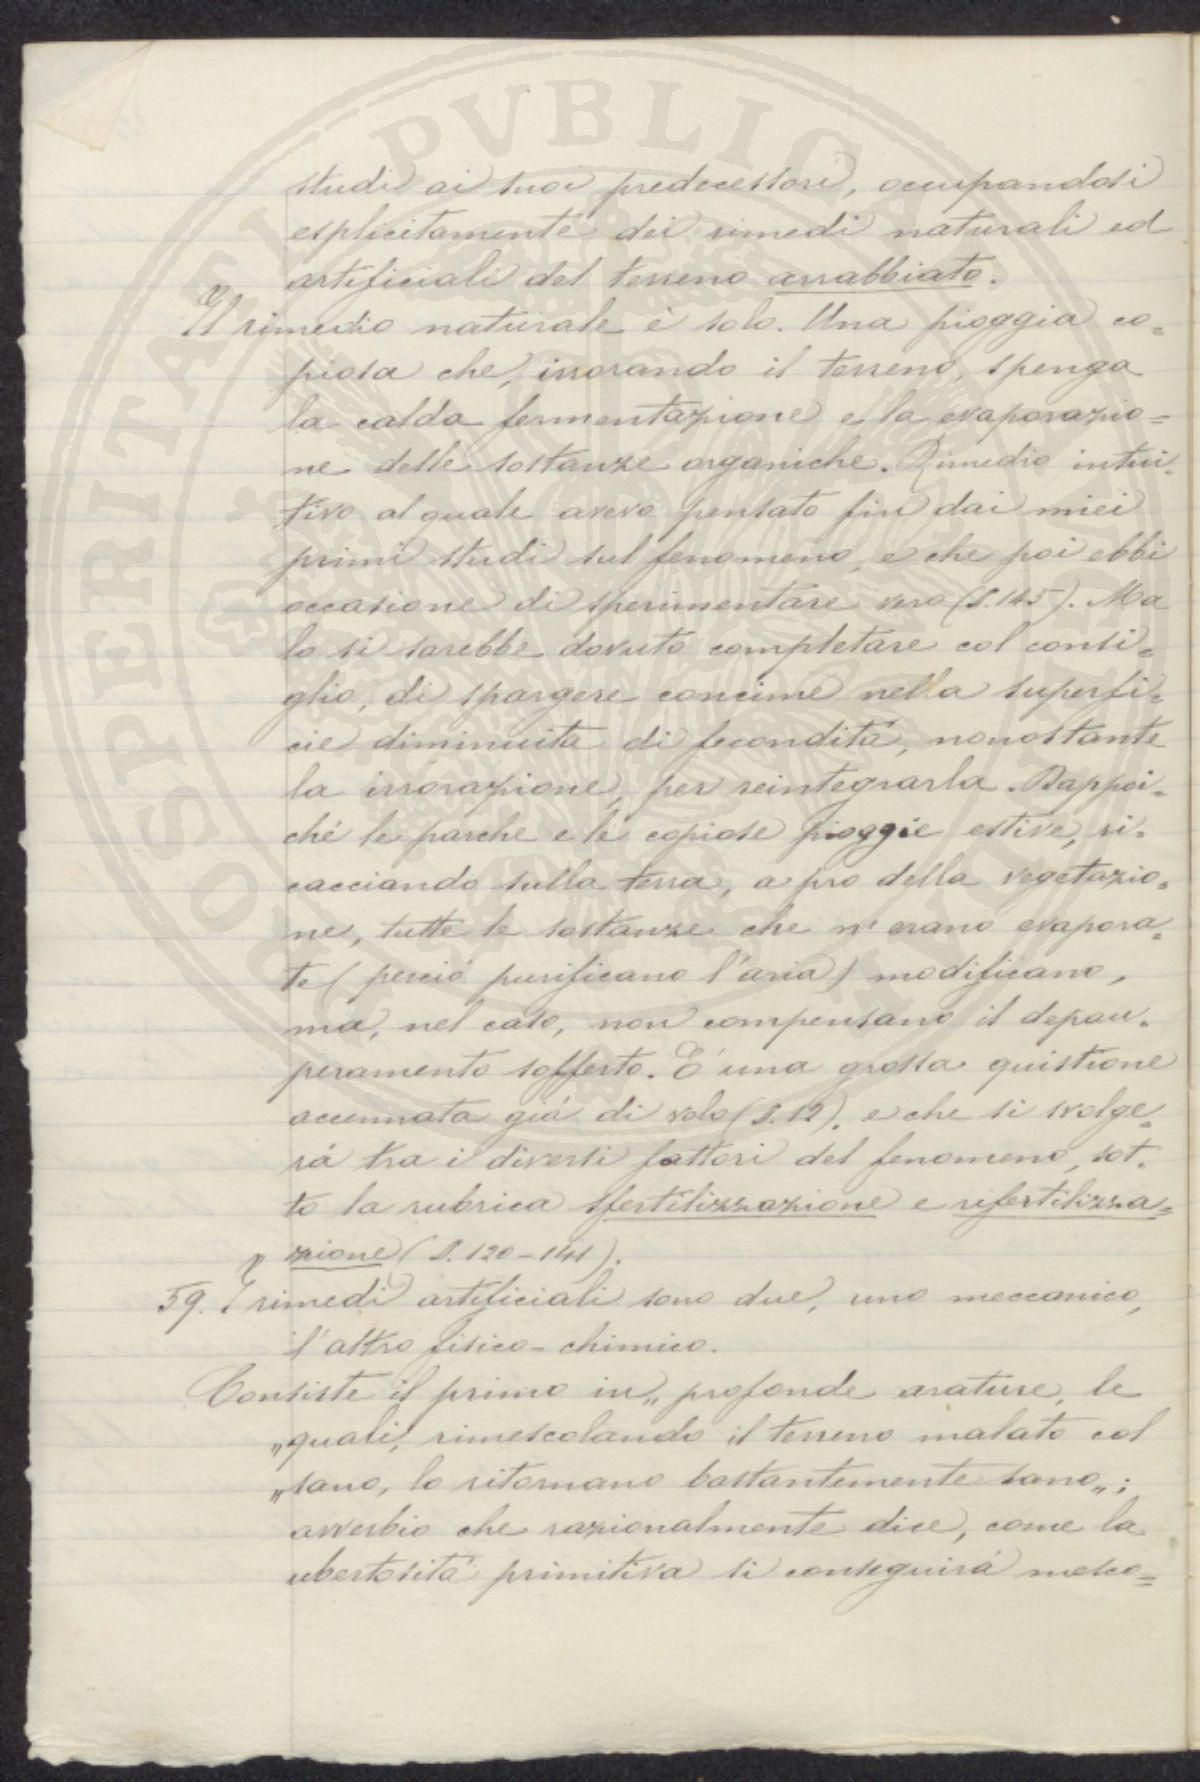 studi ai suoi predecessori, occupandosi
esplicitamente dei rimedi naturali ed
artificiali del terreno arrabbiato.
Il rimedio naturale è solo. Una pioggia co-
piosa che, irrorando il terreno, spenga
la calda fermentazione e la evaporazio=
ne delle sostanze organiche. Rimedio intui-
tivo al quale avevo pensato fin dai miei
primi studi sul fenomeno, e che poi ebbi
occasione di sperimentare vero (§. 145). Ma
lo si sarebbe dovuto completare col consi-
glio, di spargere concime nella superfi-
cie diminuita di fecondità, nonostante
la irrorazione, per reintegrarla. Dappoi-
ché le parche e le copiose pioggie estive, ri-
cacciando sulla terra, a pro della vegetazio-
ne, tutte le sostanze che n'erano evapora-
te (perciò purificano l'aria) modificano,
ma, nel caso, non compensano il depau-
peramento sofferto. É una grossa quistione
accennata già di volo (§. 12), e che si svolge-
rà tra i diversi fattori del fenomeno, sot-
to la rubrica sfertilizzazione e rifertilizza=
zione (§. 120-141).
59. I rimedi artificiali sono due, uno meccanico,
l'altro fisico-chimico.
Consiste il primo in „profonde arature, le
„quali, rimescolando il terreno malato col
„sano, lo ritornano bastantemente sano„;
avverbio che razionalmente dice, come la
ubertosità primitiva si conseguirà mesco=
PROSPERITATI PVBLICAE